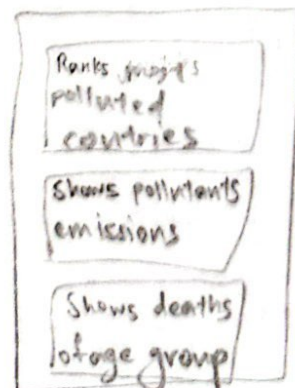 Ranks
polluted
countries
Shows pollutants
emissions
Shows deaths
of age group